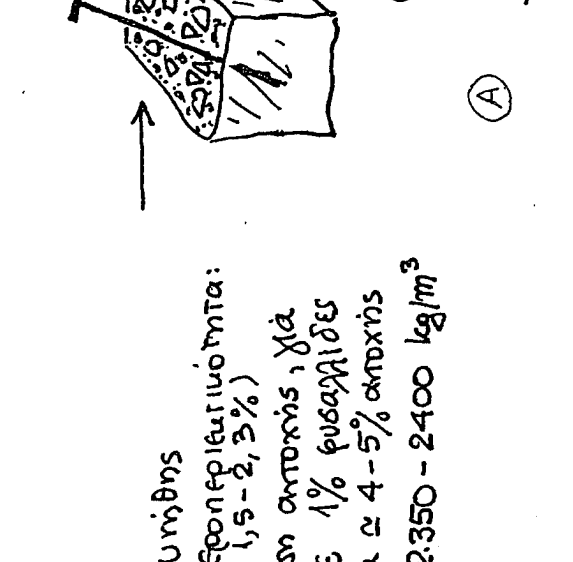 (A)
υνήθης
εροπεριεκτικότητα:
1,5-2,3%)
ση αντοχής, γιά
ε 1% φυσαλλίδες
α ≃ 4-5% αντοχής
2.350-2400 kg/m³